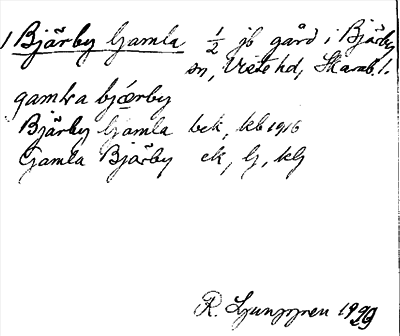 1 Bjärby Gamla 1/2 jb gård i Bjärby
sn, Viste hd, Skarab. l.
gamla bjǽrby
Bjärby Gamla bek, kb 1916
Gamla Bjärby ek, lj, klj
R. Ljunggren 1929